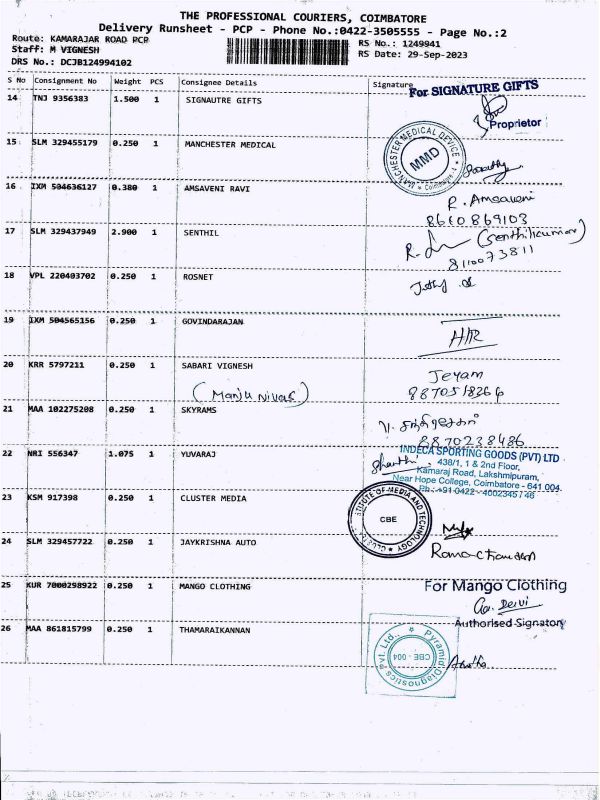 THE PROFESSIONAL COURIERS, COIMBATORE
Delivery Runsheet - PCP - Phone No.:0422-3505555 - Page No.:2
Route: KAMARAJAR ROAD PCP
RS No.: 1249941
Staff: M VIGNESH
RS Date: 29-Sep-2023
DRS No.: DCJB124994102
S No Consignment No Weight PCS Consignee Details Signature
For SIGNATURE GIFTS
14 TNJ 9356383 1.500 1 SIGNAUTRE GIFTS
Proprietor
15 SLM 329455179 0.250 1 MANCHESTER MEDICAL
MANCHESTER MEDICAL DEVICE
MMD
Coimbatore-4
16 IXM 504636127 0.380 1 AMSAVENI RAVI
R. Amsaveni
8610869103
17 SLM 329437949 2.900 1 SENTHIL
(Senthilkumar)
8110073811
18 VPL 220403702 0.250 1 ROSNET
19 IXM 504565156 0.250 1 GOVINDARAJAN
20 KRR 5797211 0.250 1 SABARI VIGNESH
Jeyam
(Manju nivas)
8870518264
21 MAA 102275208 0.250 1 SKYRAMS
8870238486
22 NRI 556347 1.075 1 YUVARAJ
INDECA SPORTING GOODS (PVT) LTD
Sharthi
438/1, 1 & 2nd Floor,
Kamaraj Road, Lakshmipuram,
Near Hope College, Coimbatore - 641 004.
Ph : +91 0422 - 4002345 / 46
23 KSM 917398 0.250 1 CLUSTER MEDIA
INSTITUTE OF MEDIA AND TECHNOLOGY
CBE
24 SLM 329457722 0.250 1 JAYKRISHNA AUTO
Ramachandran
25 KUR 7000298922 0.250 1 MANGO CLOTHING
For Mango Clothing
Authorised Signatory
26 MAA 861815799 0.250 1 THAMARAIKANNAN
Pyramid Diagnostics Pvt. Ltd.,
CBE - 004